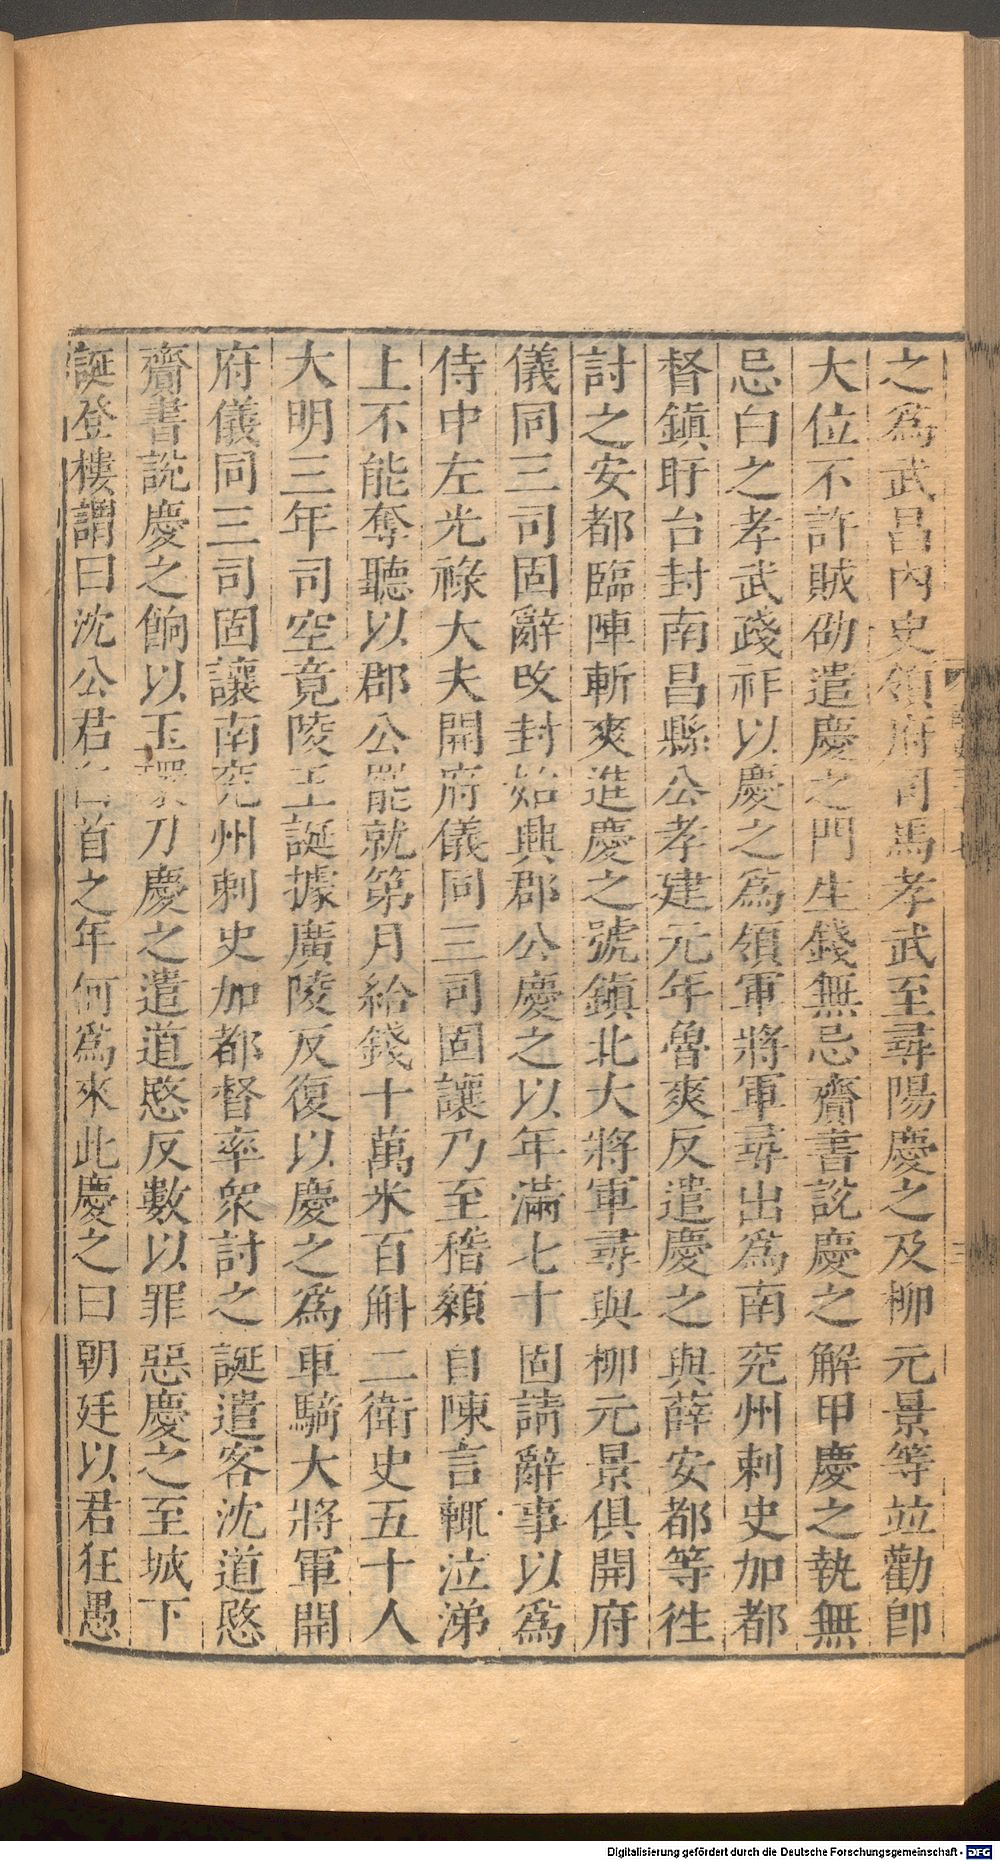 之爲武昌內史領府司馬孝武至尋陽慶之及柳元景等竝勸卽
大位不許賊劭遣慶之門生錢無忌齎書說慶之解甲慶之執無
忌白之孝武踐祚以慶之爲領軍將軍尋出爲南兖州刺史加都
督鎭盱台封南昌縣公孝建元年魯爽反遣慶之與薛安都等往
討之安都臨陣斬爽進慶之號鎭北大將軍尋與柳元景俱開府
儀同三司固辭改封始興郡公慶之以年滿七十固請辭事以爲
侍中左光祿大夫開府儀同三司固讓乃至稽顙自陳言輒泣涕
上不能奪聽以郡公罷就第月給錢十萬米百斛二衛史五十人
大明三年司空竟陵王誕據廣陵反復以慶之爲車騎大將軍開
府儀同三司固讓南兖州刺史加都督率衆討之誕遣客沈道愍
齎書說慶之餉以玉環刀慶之遣道愍反數以罪惡慶之至城下
誕登樓謂曰沈公君白首之年何爲來此慶之曰朝廷以君狂愚
Digitalisierung gefördert durch die Deutsche Forschungsgemeinschaft - DFG